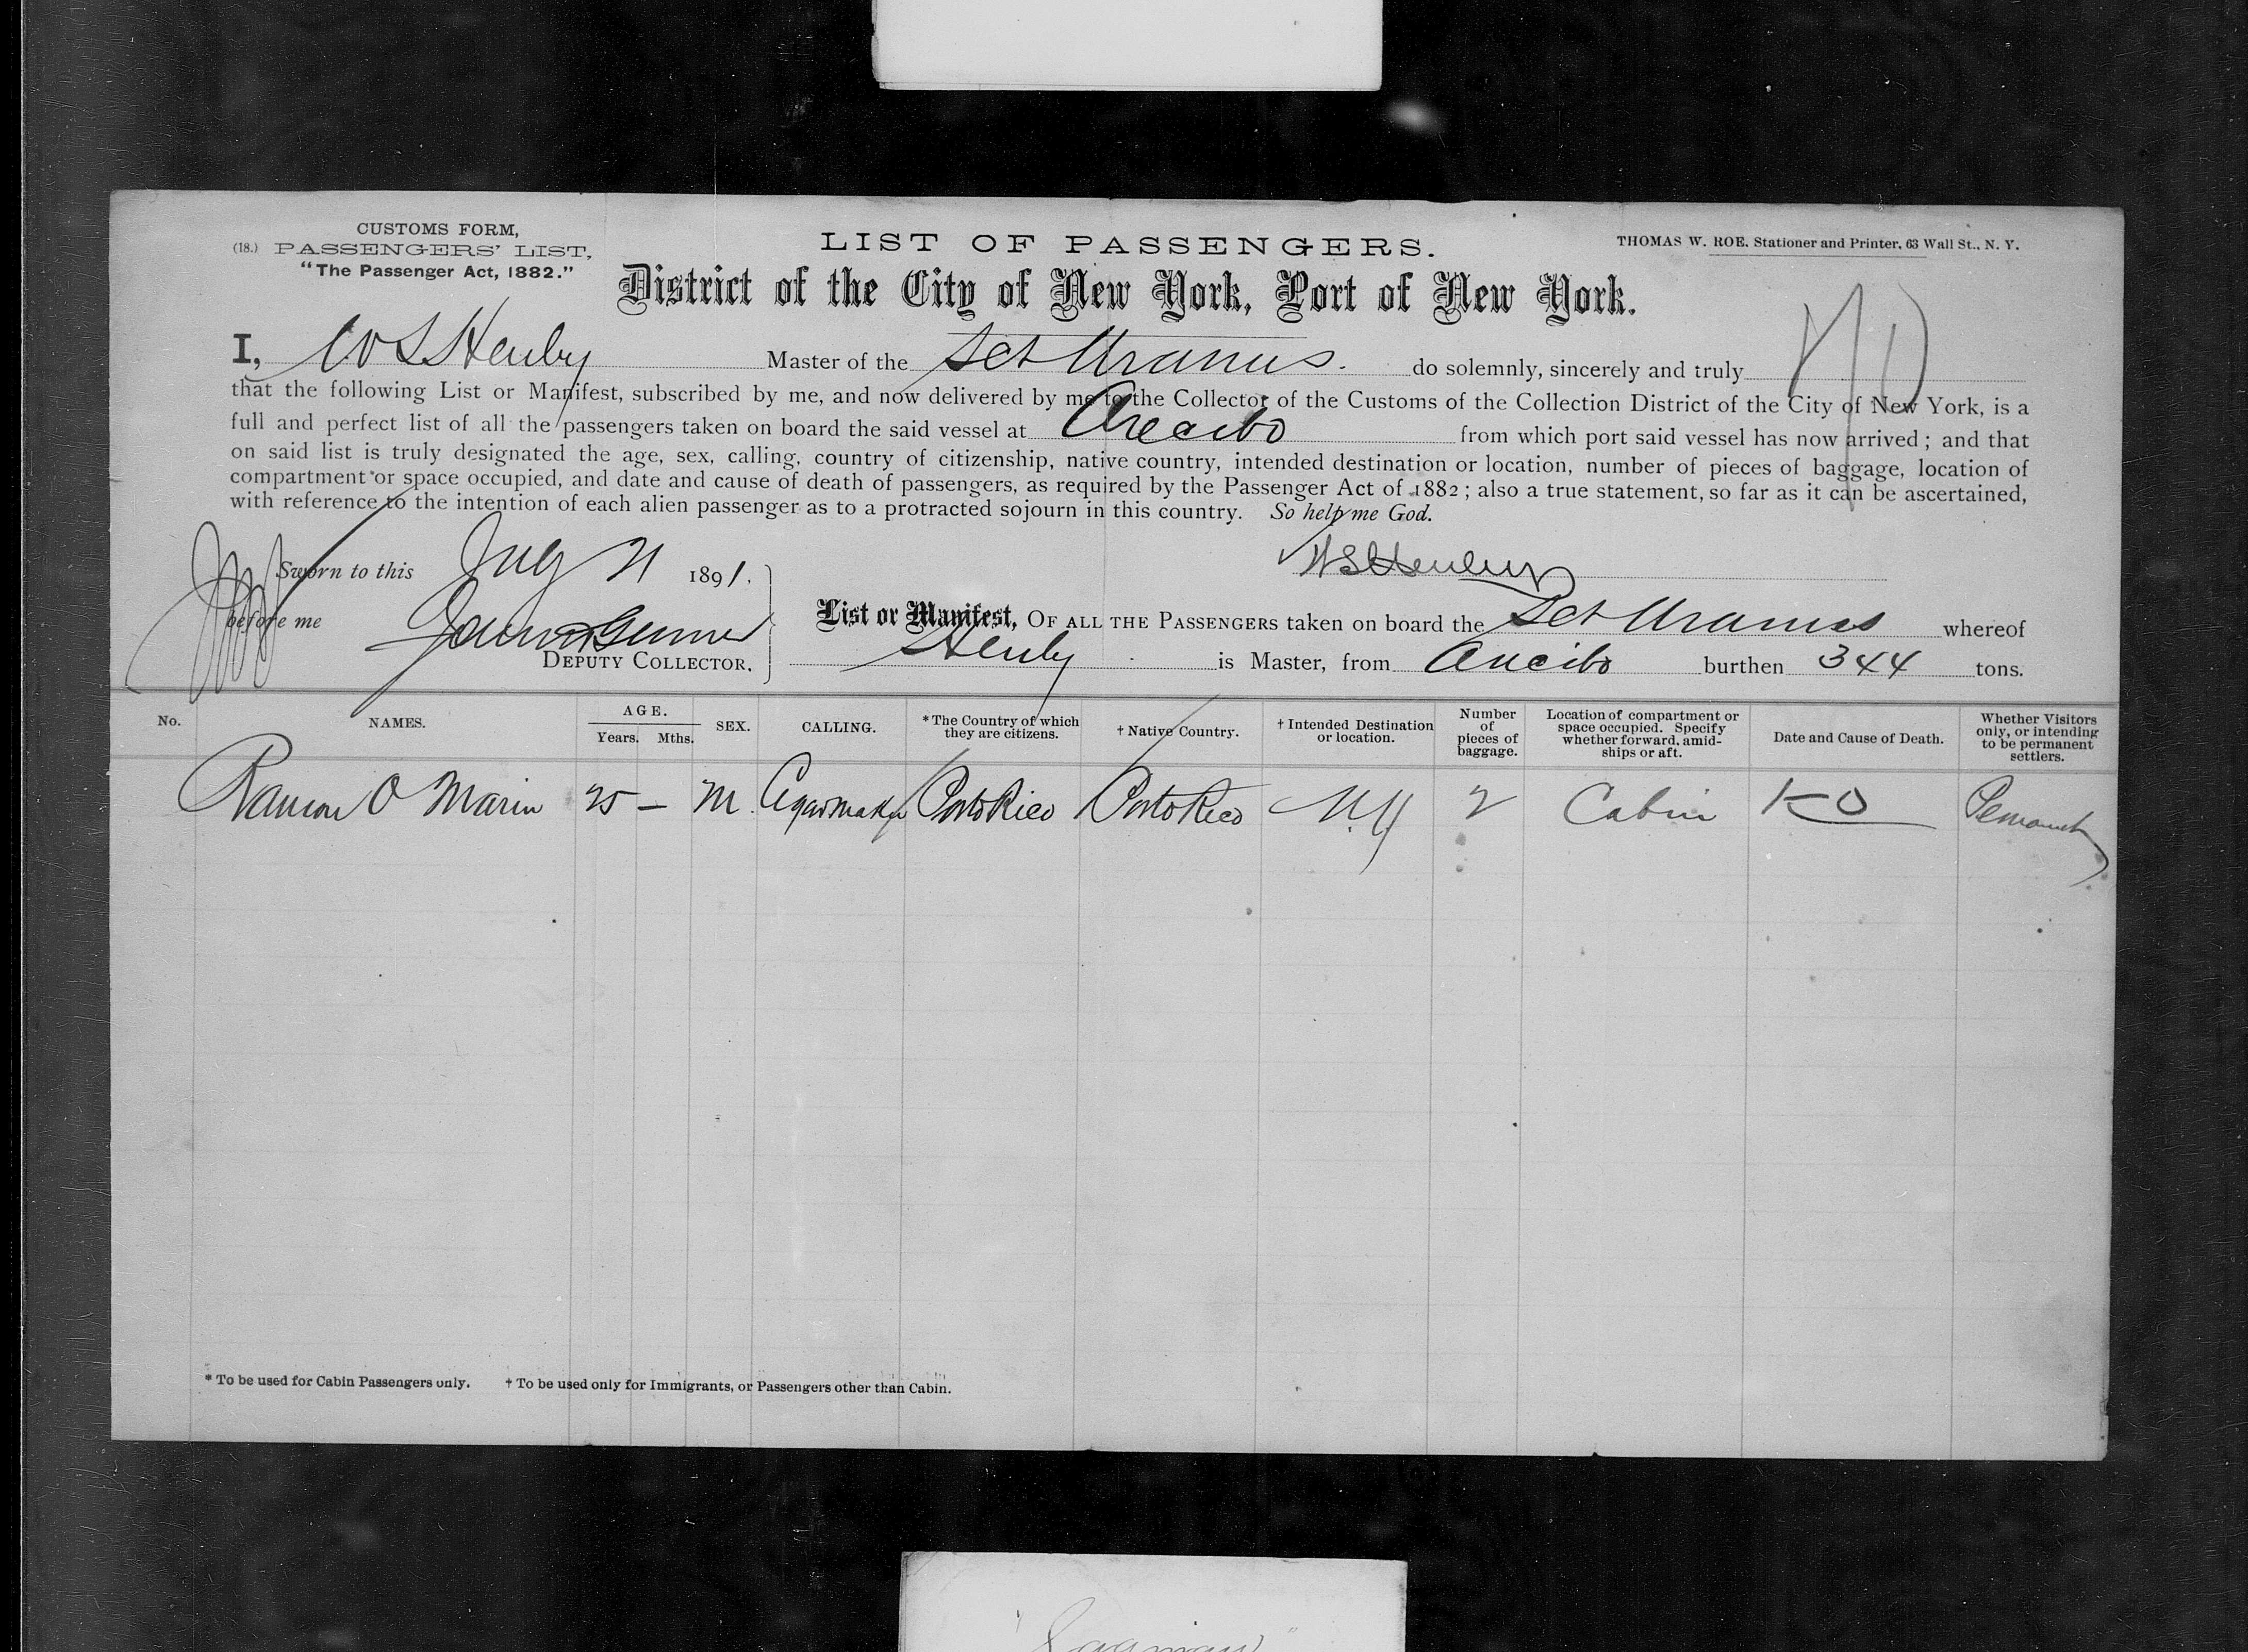 CUSTOMS FORM,
(18.) PASSENGERS' LIST,
"The Passenger Act, 1882."
LIST OF PASSENGERS.
THOMAS W. ROE, Stationer and Printer, 63 Wall St., N. Y.
District of the City of New York, Port of New York.
I, W S Henly Master of the Sch Uranus. do solemnly, sincerely and truly
that the following List or Manifest, subscribed by me, and now delivered by me to the Collector of the Customs of the Collection District of the City of New York, is a
full and perfect list of all the passengers taken on board the said vessel at Arecibo from which port said vessel has now arrived; and that
on said list is truly designated the age, sex, calling, country of citizenship, native country, intended destination or location, number of pieces of baggage, location of
compartment or space occupied, and date and cause of death of passengers, as required by the Passenger Act of 1882; also a true statement, so far as it can be ascertained,
with reference to the intention of each alien passenger as to a protracted sojourn in this country. So help me God.
Sworn to this July 21 1891.
W S Henly
before me
DEPUTY COLLECTOR.
List or Manifest, OF ALL THE PASSENGERS taken on board the Sch Uranus whereof
Henly is Master, from Arecibo burthen 344 tons.
No. NAMES. AGE. Years. Mths. SEX. CALLING. * The Country of which they are citizens. † Native Country. † Intended Destination or location. Number of pieces of baggage. Location of compartment or space occupied. Specify whether forward, amidships or aft. Date and Cause of Death. Whether Visitors only, or intending to be permanent settlers.
Ramon O Marin 25 — M Cigarmaker Porto Rico Porto Rico N.Y 2 Cabin KO Permanent
* To be used for Cabin Passengers only. † To be used only for Immigrants, or Passengers other than Cabin.